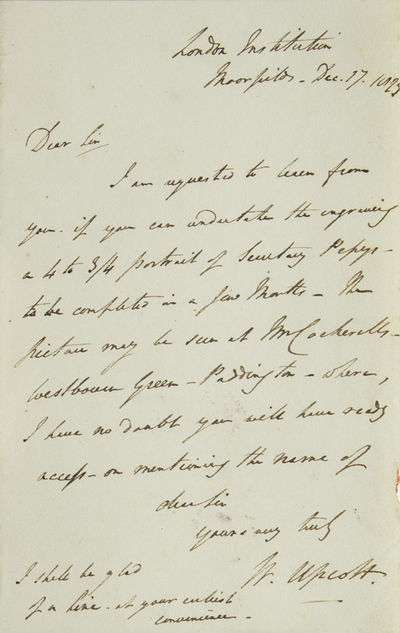 London Institution
Moorfields - Dec. 17. 1823
Dear Sir
I am requested to learn from
you - if you can undertake the engraving
a 4to 3/4 portrait of Secretary Pepys -
to be completed in a few Months - The
picture may be seen at Mr Cockerell's -
Westbourn Green - Paddington - where,
I have no doubt you will have ready
access - on mentioning the name of
dear Sir
yours very truly
W. Upcott.
I shall be glad
of a line - at your earliest
convenience -